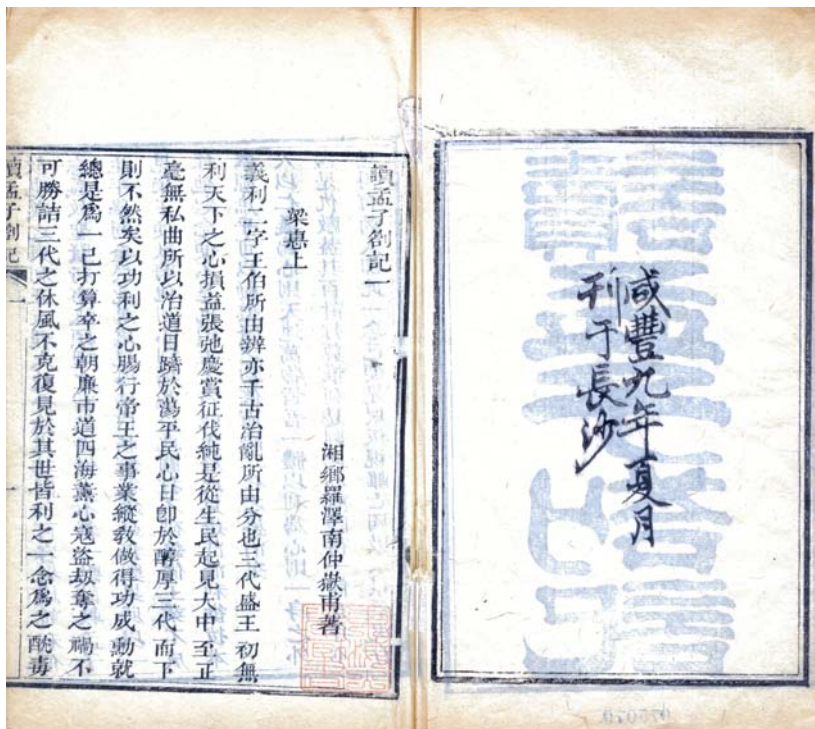 咸豐九年夏月
刊于長沙
讀孟子劄記一
梁惠上
湘鄉羅澤南仲嶽甫著
義利二字王伯所由辨亦千古治亂所由分也三代盛王初無
利天下之心損益張弛慶賞征伐純是從生民起見大中至正
毫無私曲所以治道日躋於蕩平民心日卽於醇厚三代而下
則不然矣以功利之心腸行帝王之事業縱教做得功成動就
總是爲一己打算卒之朝廉市道四海薰心寇盜刼奪之禍不
可勝詰三代之休風不克復見於其世皆利之一念爲之酖毒
讀孟子劄記
一